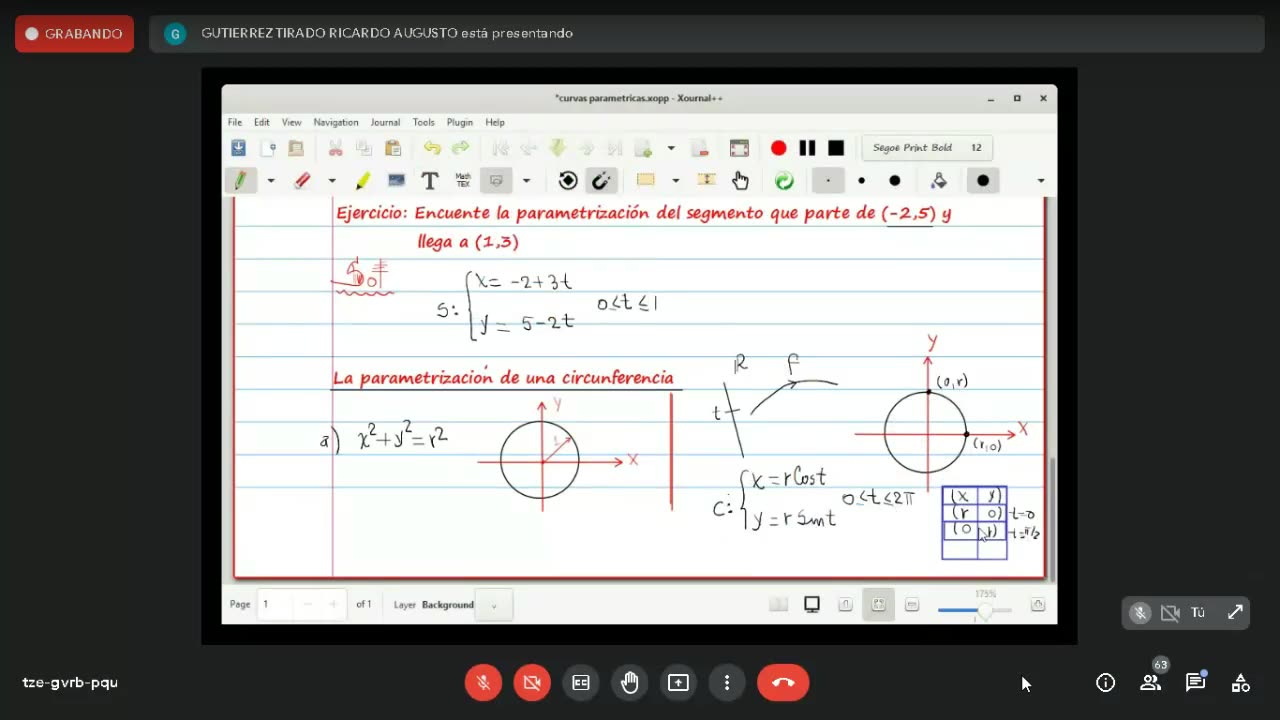 GRABANDO
G GUTIERREZ TIRADO RICARDO AUGUSTO está presentando
*curvas parametricas.xopp - Xournal++
File Edit View Navigation Journal Tools Plugin Help
Segoe Print Bold 12
T Math TEX
Ejercicio: Encuente la parametrización del segmento que parte de (-2,5) y
llega a (1,3)
Sol
S: { x = -2+3t
y = 5-2t
0≤t≤1
La parametrización de una circunferencia
a) x²+y²=r²
Y
X
R f
t
C: { x = r Cost
y = r Sent
0≤t≤2π
Y
(0,r)
X
(r,0)
(x y)
(r 0) t=0
(0 r) t=π/2
Page 1 of 1 Layer Background
175%
Tú
tze-gvrb-pqu
63